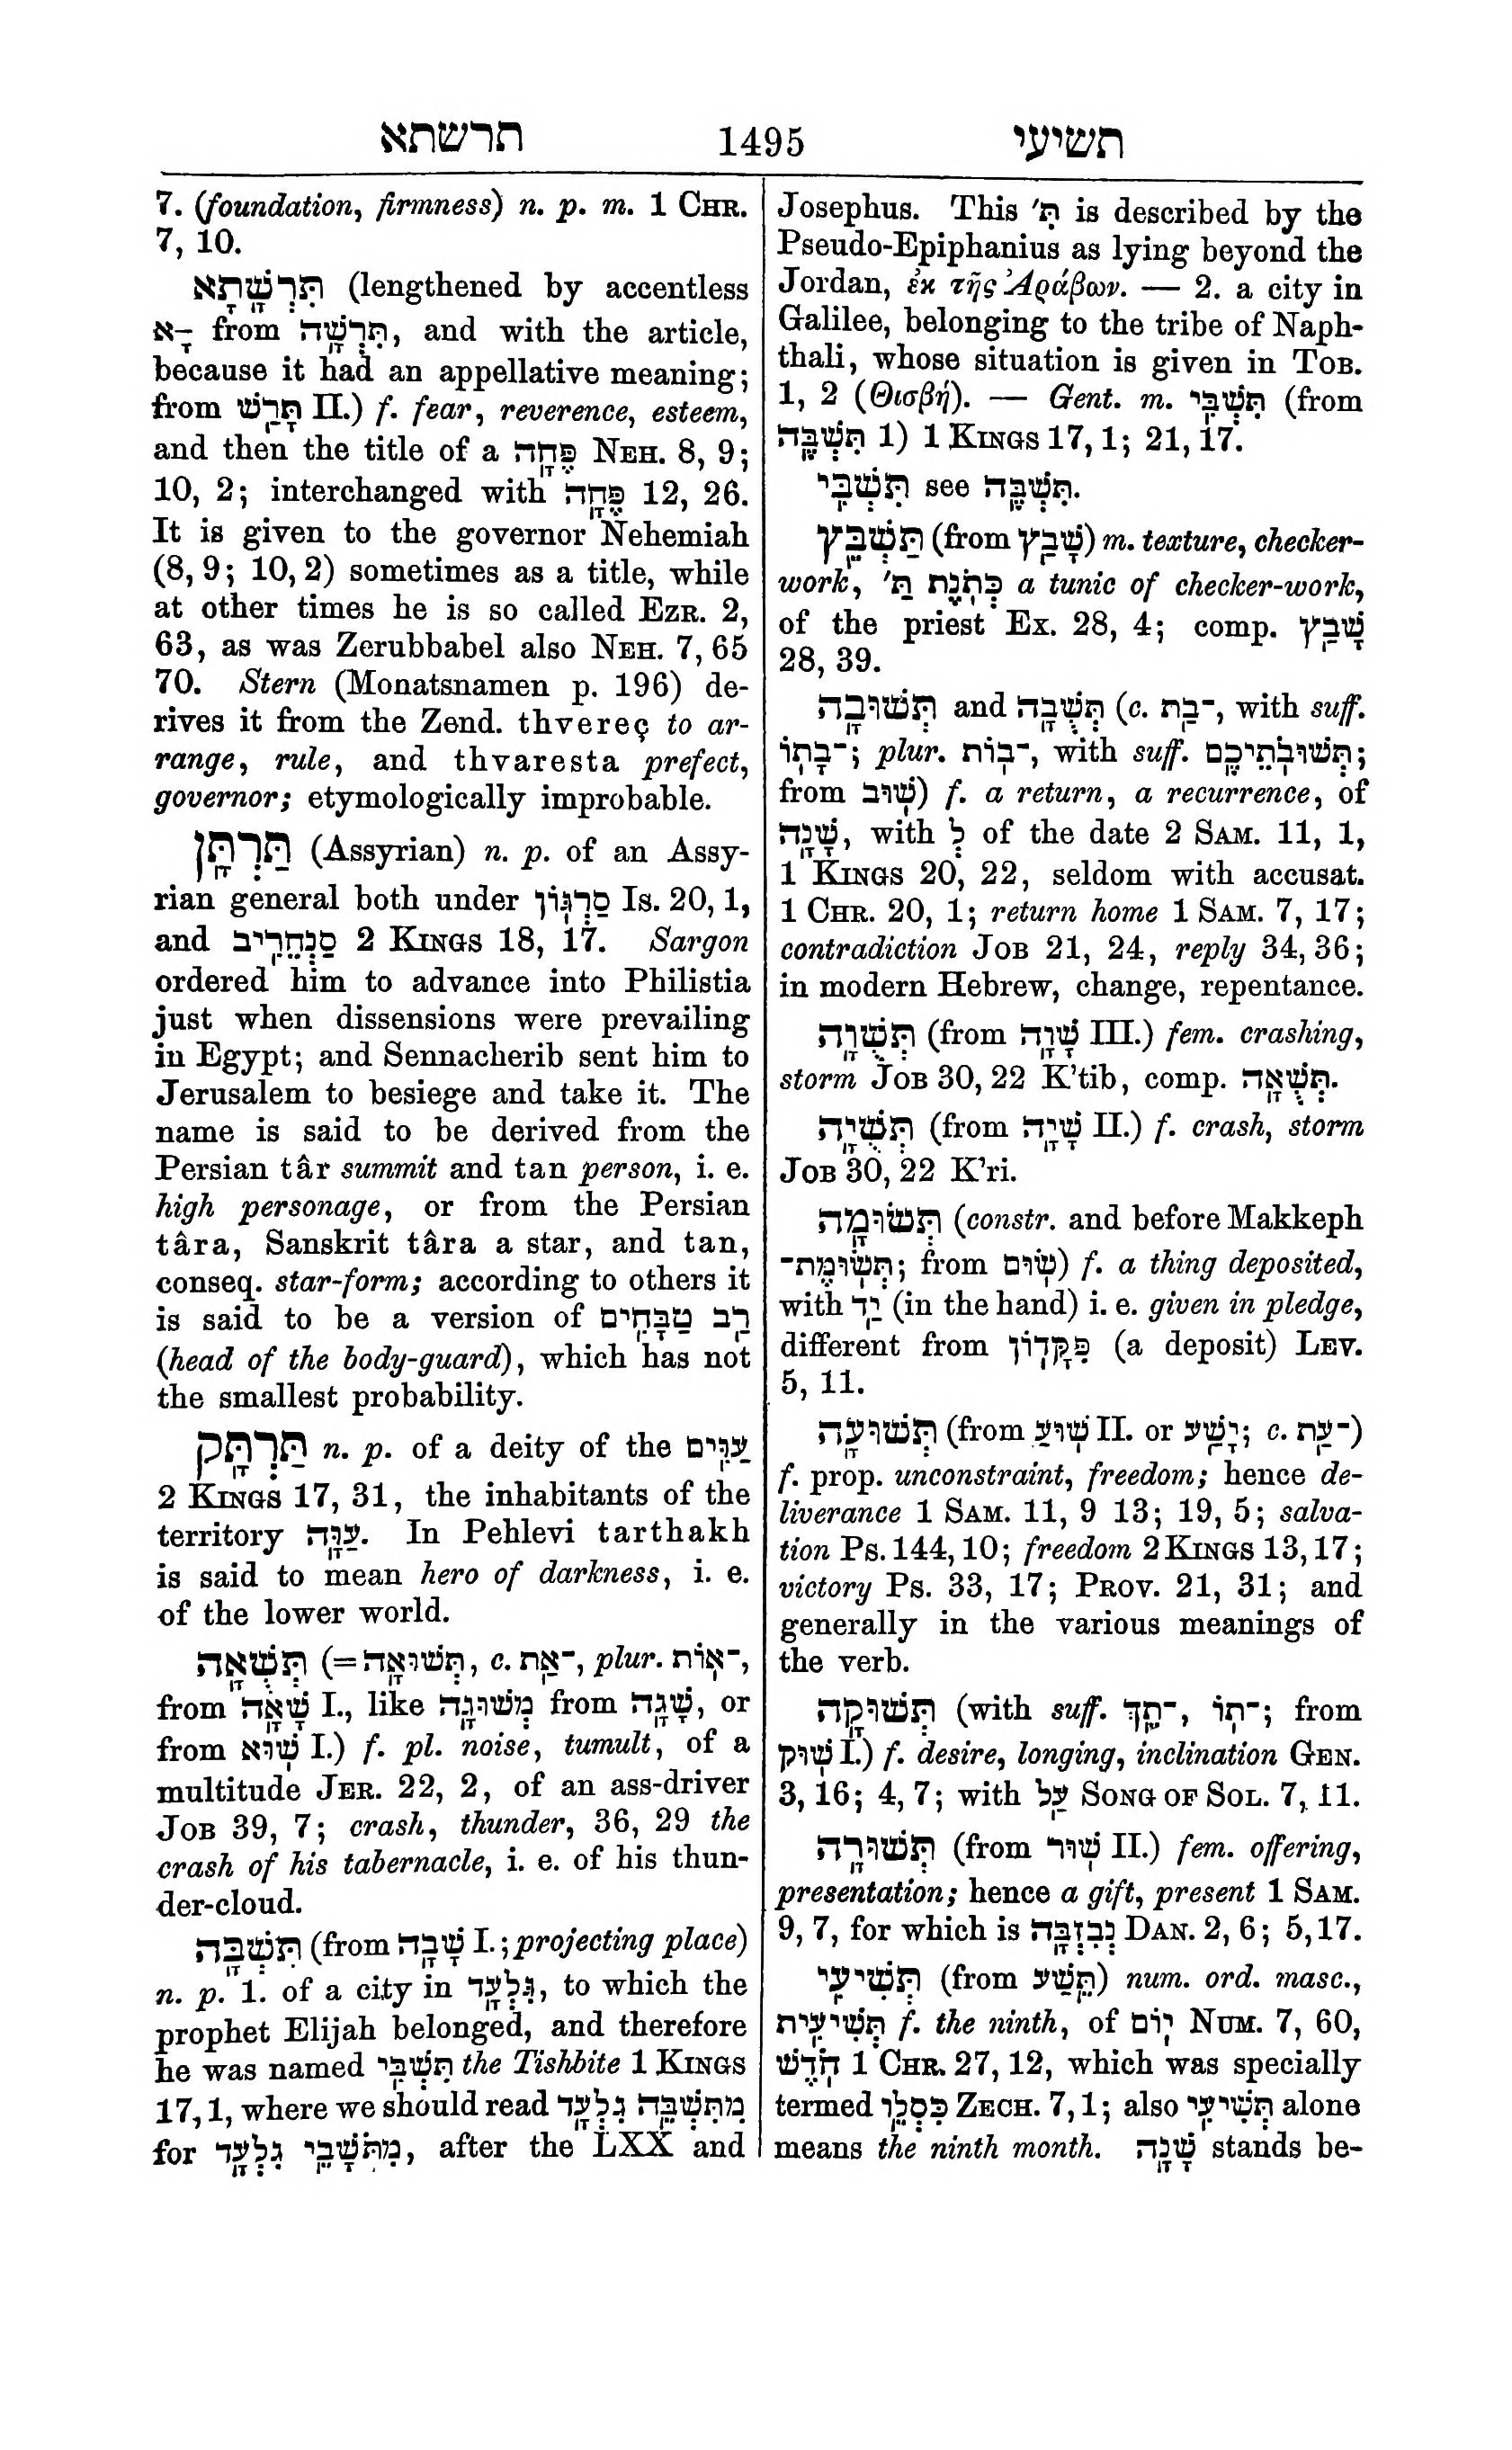 תרשתא 1495 תשיעי
7. (foundation, firmness) n. p. m. 1 CHR.
7, 10.
תִּרְשָׁתָא (lengthened by accentless
־ָא from תִּרְשָׁה, and with the article,
because it had an appellative meaning;
from תָּרַשׁ II.) f. fear, reverence, esteem,
and then the title of a פֶּחָה NEH. 8, 9;
10, 2; interchanged with פֶּחָה 12, 26.
It is given to the governor Nehemiah
(8, 9; 10, 2) sometimes as a title, while
at other times he is so called EZR. 2,
63, as was Zerubbabel also NEH. 7, 65
70. Stern (Monatsnamen p. 196) de-
rives it from the Zend. thvereç to ar-
range, rule, and thvaresta prefect,
governor; etymologically improbable.
תַּרְתָּן (Assyrian) n. p. of an Assy-
rian general both under סַרְגוֹן Is. 20, 1,
and סַנְחֵרִיב 2 KINGS 18, 17. Sargon
ordered him to advance into Philistia
just when dissensions were prevailing
in Egypt; and Sennacherib sent him to
Jerusalem to besiege and take it. The
name is said to be derived from the
Persian târ summit and tan person, i. e.
high personage, or from the Persian
târa, Sanskrit târa a star, and tan,
conseq. star-form; according to others it
is said to be a version of רַב טַבָּחִים
(head of the body-guard), which has not
the smallest probability.
תַּרְתָּק n. p. of a deity of the עַוִּים
2 KINGS 17, 31, the inhabitants of the
territory עַוָּה. In Pehlevi tarthakh
is said to mean hero of darkness, i. e.
of the lower world.
תְּשֻׁאָה (=תְּשׁוּאָה, c. ־אַת, plur. ־אוֹת,
from שָׁאָה I., like מְשׁוּגָה from שָׁגָה, or
from שׁוּא I.) f. pl. noise, tumult, of a
multitude JER. 22, 2, of an ass-driver
JOB 39, 7; crash, thunder, 36, 29 the
crash of his tabernacle, i. e. of his thun-
der-cloud.
תִּשְׁבֶּה (from שָׁבָה I.; projecting place)
n. p. 1. of a city in גִּלְעָד, to which the
prophet Elijah belonged, and therefore
he was named תִּשְׁבִּי the Tishbite 1 KINGS
17, 1, where we should read מִתִּשְׁבֵּה גִלְעָד
for מִתֹּשָׁבֵי גִלְעָד, after the LXX and
Josephus. This תִּ' is described by the
Pseudo-Epiphanius as lying beyond the
Jordan, ἐκ τῆς Ἀράβων. — 2. a city in
Galilee, belonging to the tribe of Naph-
thali, whose situation is given in TOB.
1, 2 (Θισβή). — Gent. m. תִּשְׁבִּי (from
תִּשְׁבֶּה 1) 1 KINGS 17, 1; 21, 17.
תִּשְׁבִּי see תִּשְׁבֶּה.
תַּשְׁבֵּץ (from שָׁבַץ) m. texture, checker-
work, כְּתֹנֶת תַּ' a tunic of checker-work,
of the priest EX. 28, 4; comp. שָׁבַץ
28, 39.
תְּשׁוּבָה and תְּשֻׁבָה (c. ־בַת, with suff.
־בָתוֹ; plur. ־בוֹת, with suff. תְּשׁוּבֹתֵיכֶם;
from שׁוּב) f. a return, a recurrence, of
שָׁנָה, with לְ of the date 2 SAM. 11, 1,
1 KINGS 20, 22, seldom with accusat.
1 CHR. 20, 1; return home 1 SAM. 7, 17;
contradiction JOB 21, 24, reply 34, 36;
in modern Hebrew, change, repentance.
תְּשֻׁוָה (from שָׁוָה III.) fem. crashing,
storm JOB 30, 22 K'tib, comp. תְּשֻׁאָה.
תְּשֻׁיָה (from שָׁיָה II.) f. crash, storm
JOB 30, 22 K'ri.
תְּשׂוּמָה (constr. and before Makkeph
תְּשׂוּמֶת־; from שׂוּם) f. a thing deposited,
with יַד (in the hand) i. e. given in pledge,
different from פִּקָּדוֹן (a deposit) LEV.
5, 11.
תְּשׁוּעָה (from שׁוּעַ II. or יָשַׁע; c. ־עַת)
f. prop. unconstraint, freedom; hence de-
liverance 1 SAM. 11, 9 13; 19, 5; salva-
tion PS. 144, 10; freedom 2 KINGS 13, 17;
victory PS. 33, 17; PROV. 21, 31; and
generally in the various meanings of
the verb.
תְּשׁוּקָה (with suff. ־תֵךְ, ־תוֹ; from
שׁוּק I.) f. desire, longing, inclination GEN.
3, 16; 4, 7; with עַל SONG OF SOL. 7, 11.
תְּשׁוּרָה (from שׁוּר II.) fem. offering,
presentation; hence a gift, present 1 SAM.
9, 7, for which is נְבִזְבָּה DAN. 2, 6; 5, 17.
תְּשִׁיעִי (from תֵּשַׁע) num. ord. masc.,
תְּשִׁיעִית f. the ninth, of יוֹם NUM. 7, 60,
חֹדֶשׁ 1 CHR. 27, 12, which was specially
termed כִּסְלֵו ZECH. 7, 1; also תְּשִׁיעִי alone
means the ninth month. שָׁנָה stands be-